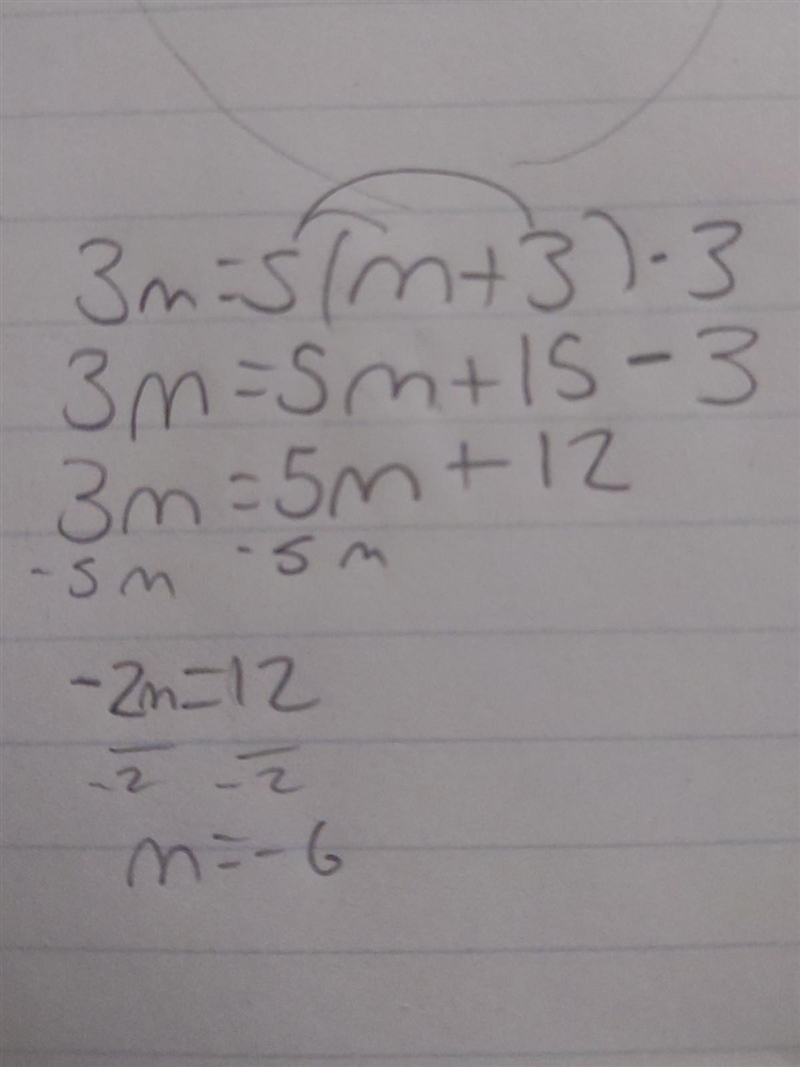 3m=5(m+3)-3
3m=5m+15-3
3m=5m+12
-5m -5m
-2m=12
-2 -2
m=-6